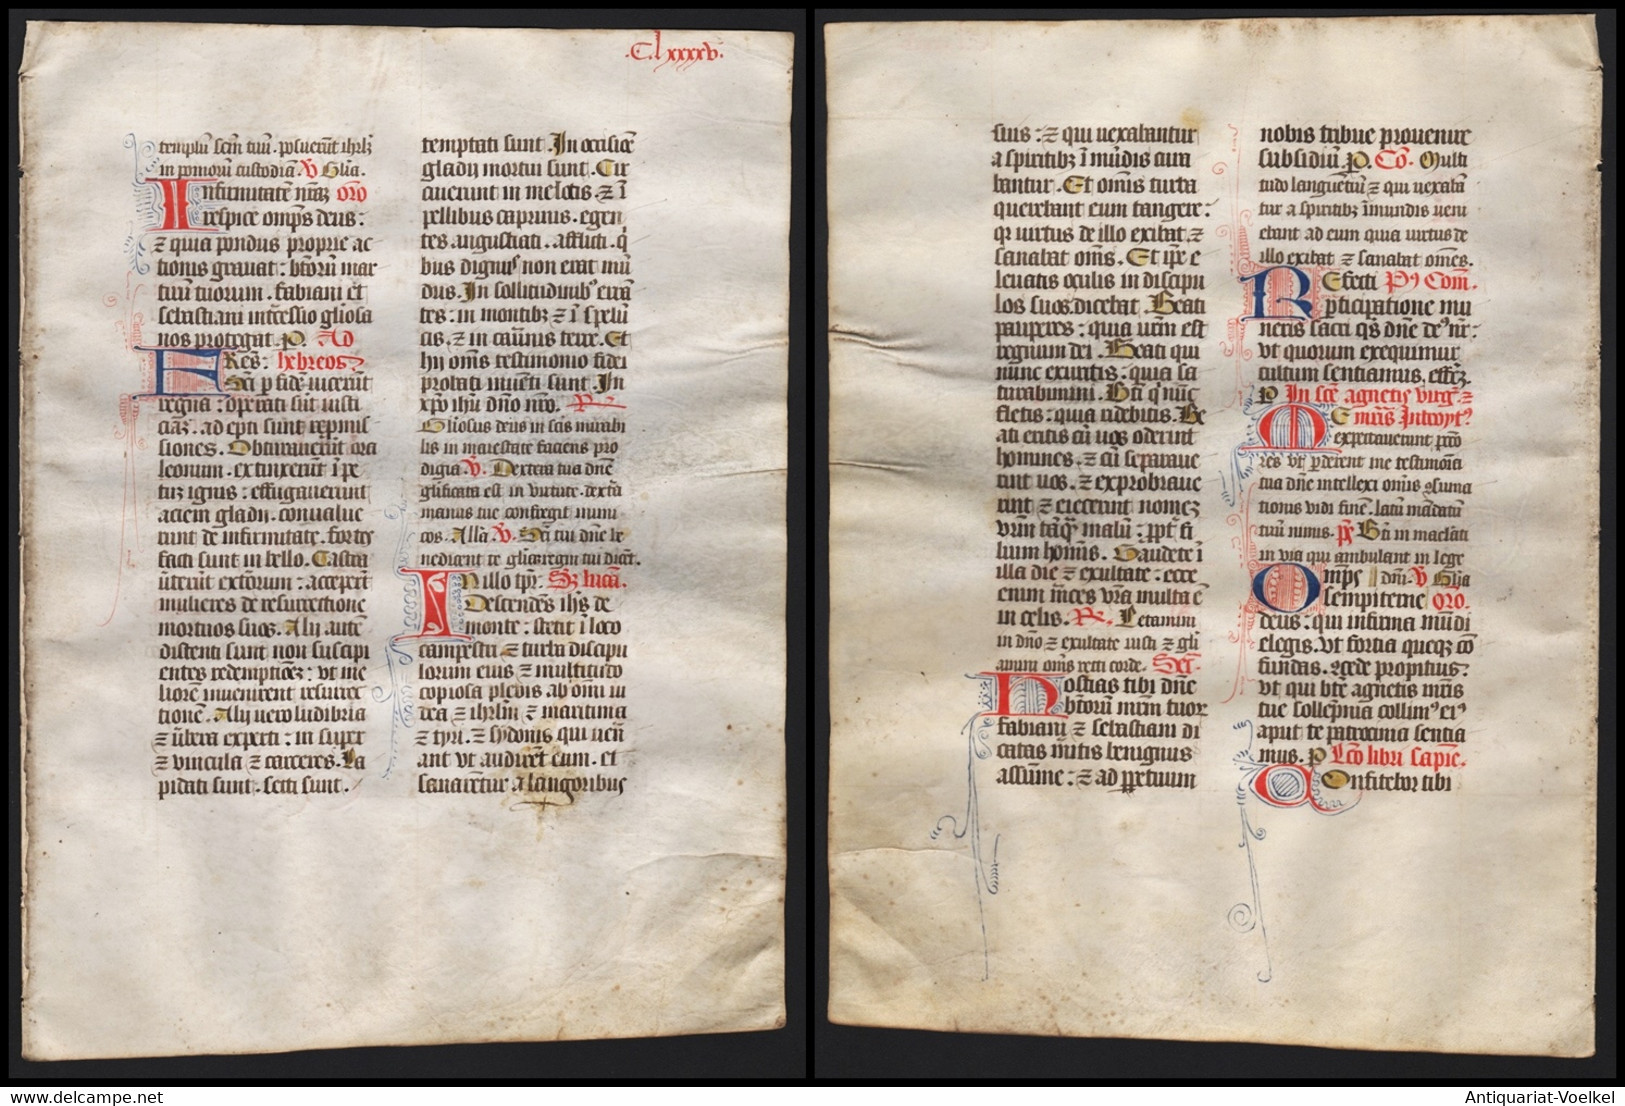 .C.lxxxxv.
templū scm̄ tuū. posuerūt ihrlz
in pomorū custodiā. V Gl̄ia.
Infirmitatē nr̄az oro
respice omp̄s deus:
⁊ quia pondus proprie ac
tionis gravat: btōrū mar
tirū tuorum. fabiani et
sebastiani int̄cessio gl̄iosa
nos protegat. P. Ad
FRēs: hebreos
Scī p fidē vicerūt
regna: operati sūt iusti
ciā. ad epti sunt repmis
siones. Obturaverūt ora
leonum. extinxerūt īpe
tuz ignis: effugaverunt
aciem gladij. convalue
runt de infirmitate. fortes
facti sunt in bello. Castra
ūterūt extōrum: acceperūt
mulieres de resurrectione
mortuos suos. Alij autē
distenti sunt non suscipi
entes redemptionēz: vt me
liorem invenirent resurrec
tionē. Alij vero ludibria
⁊ ūbera experti: in super
⁊ vincula ⁊ carceres. La
pidati sunt. secti sunt.
temptati sunt. In occisiōe
gladij mortui sunt. Cir
cuierunt in melotis. ⁊ ī
pellibus caprinis. egen
tes. angustiati. afflicti. q̄
bus dignus non erat mū
dus. In sollitudinibus erran
tes: in montibz ⁊ ī spelū
cis. ⁊ in cauīnis terre. Et
hij om̄s testimonio fidei
probati invēti sunt. In
xp̄o ihū dn̄o nr̄o. R
Gliosus deus in scīs mirabi
lis in maiestate faciens pro
digia. V. Dextera tua dn̄e
glificata est in virtute. dextā
manus tue confregit inimi
cos. Allā V. Scī tui dn̄e be
nedicent te gl̄iaz regni tui dicēt.
In illo tpr̄. Sz lucā.
Descendēs ihs de
monte: stetit ī loco
campestri ⁊ turba discipu
lorum eius ⁊ multitudo
copiosa plebis ab omī iu
dea ⁊ ihrlm̄ ⁊ maritima
⁊ tyri. ⁊ sydonis qui uen̄
ant vt audirēt eum. et
sanarētur a langoribus
suis: ⁊ qui vexabantur
a spiritibz ī mūdis cura
bantur. Et om̄is turba
querebant eum tangere:
qr virtus de illo exibat. ⁊
sanabat om̄s. Et ip̄e e
levatis oculis in discipu
los suos. dicebat. Beati
pauperes: quia vr̄m est
regnum dei. Beati qui
nunc exuritis: quia sa
turabimini. Bt̄i q̄ nūc
fletis: quia ridebitis. Be
ati eritis cū vos oderint
homines. ⁊ cū separave
rint vos. ⁊ exprobrave
rint ⁊ eiecerint nomez
vr̄m tāqz malū: ppt̄ fi
lium homīs. Gaudete ī
illa die ⁊ exultate: ecce
enim m̄rces vr̄a multa ē
in celis. R. Letamini
in dn̄o ⁊ exultate iusti ⁊ gl̄i
amini om̄s recti corde. Sec̄.
Hostias tibi dn̄e
btōrum mr̄m tuor
fabiani ⁊ sebastiani di
catas mītis benignus
assume: ⁊ ad ppetuum
nobis tribue provenire
subsidiū P. Co. Multi
tudo languētiū ⁊ qui vexabā
tur a spiritibz īmundis veni
ebant ad eum quia virtus de
illo exibat ⁊ sanabat om̄es.
REfecti P9 Com̄.
pticipatione mu
neris sacri qs dn̄e de9 nr̄:
vt quorum exequimur
cultum sentiamus effc̄z.
P In scē agnetis virg. ⁊
ME mr̄is Introyt9
expectaverunt pccō
res vt pderent me testimōia
tua dn̄e intellexi om̄is ɔsuma
tionis vidi finē. latū mādatū
tuū nimis. Ps Bt̄i in maclati
in via qui ambulant in lege
Omps || dn̄i. V Glia
sempiterne oro.
deus: qui infirma mūdi
elegis. vt fortia queqz cō
fundas. ɔcede propitius:
vt qui bt̄e agnetis mr̄is
tue sollēpnia colim9 ei9
aput te patrocinia sentia
mus. P Lc̄o libri sapiē.
Confitebor tibi
Antiquariat-Voelkel